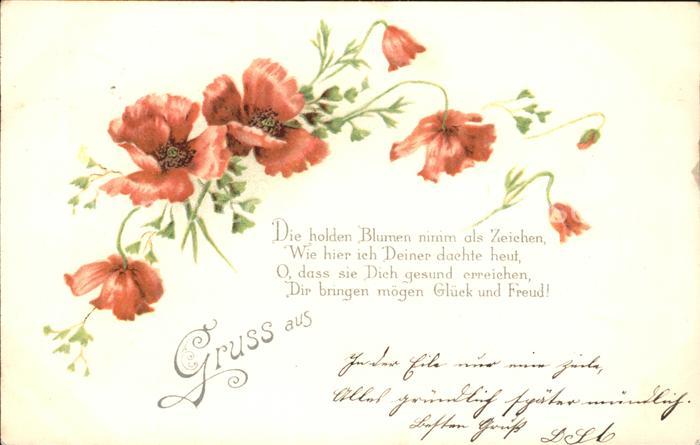 Die holden Blumen nimm als Zeichen,
Wie hier ich Deiner dachte heut,
O, dass sie Dich gesund erreichen,
Dir bringen mögen Glück und Freud!
Gruss aus
In der Eile nur eine Zeile,
Alles gründlich später mündlich.
Besten Gruß